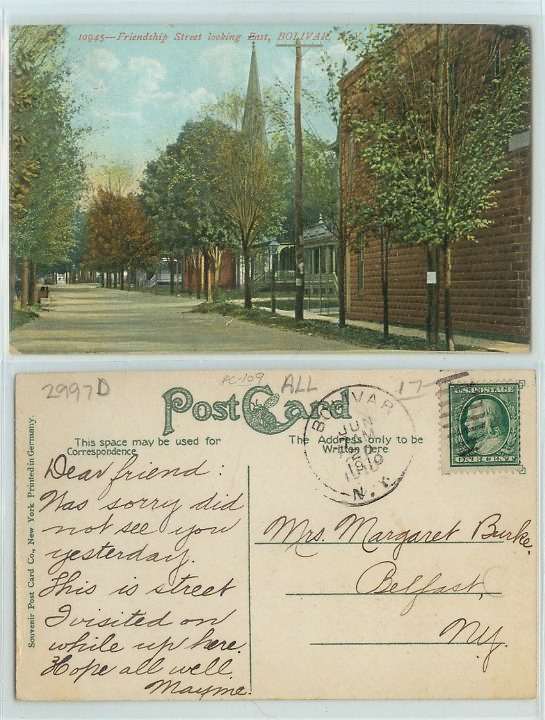 10945—Friendship Street looking East, BOLIVAR, N.Y.
2997D
PC-109
ALL
17
Post Card
This space may be used for
Correspondence
The Address only to be
Written Here
BOLIVAR
JUN
20
1910
N.Y.
U.S. POSTAGE
ONE CENT
Souvenir Post Card Co., New York Printed in Germany.
Dear friend:
Was sorry did
not see you
yesterday.
This is street
I visited on
while up here.
Hope all well.
Mayme.
Mrs. Margaret Burke,
Belfast,
NY.